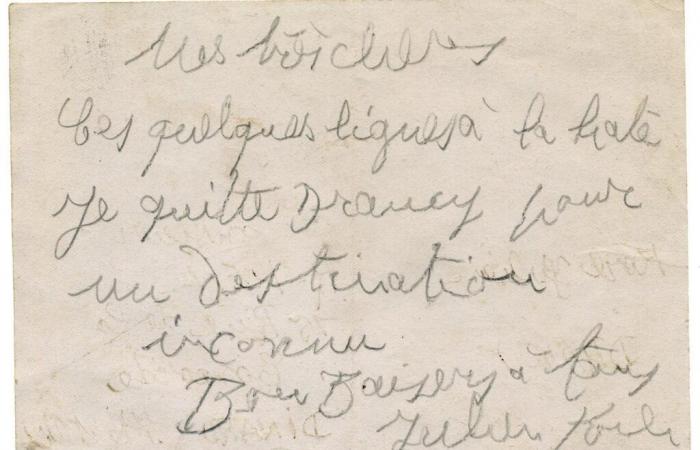 Mes très chères
Ces quelques lignes à la hate
Je quitte Drancy pour
un destination
inconnu
Bons Baisers à tous